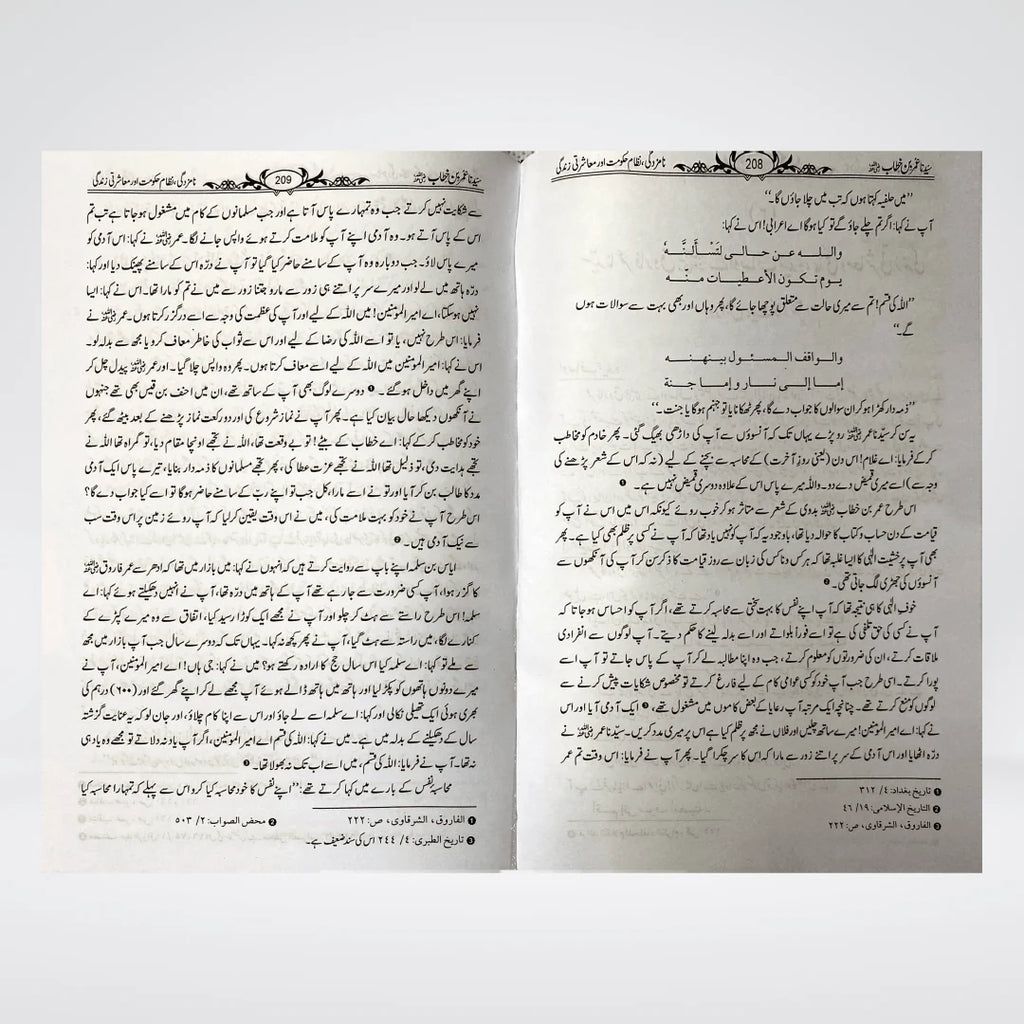 سیّدنا عمر بن خطاب رضی اللہ عنہ 208 نامزدگی، نظام حکومت اور معاشرتی زندگی
”میں حلفیہ کہتا ہوں کہ تب میں چلا جاؤں گا۔“
آپ نے کہا: اگر تم چلے جاؤ گے تو کیا ہوگا اے اعرابی! اس نے کہا:
واللہ عن حالی لتَسْأَلَنَّهٗ
یوم تکون الأعطیات منّہ
”اللہ کی قسم! تم سے میری حالت سے متعلق پوچھا جائے گا، پھر وہاں اور بھی بہت سے سوالات ہوں
گے۔“
والواقف المسئول بینھنہ
إما إلی نار و إما جنة
”ذمہ دار کھڑا ہو کر ان سوالوں کا جواب دے گا، پھر ٹھکانا یا تو جہنم ہوگا یا جنت۔“
یہ سن کر سیّدنا عمر رضی اللہ عنہ رو پڑے یہاں تک کہ آنسوؤں سے آپ کی داڑھی بھیگ گئی۔ پھر خادم کو مخاطب
کر کے فرمایا: اے غلام! اس دن (یعنی روزِ آخرت) کے محاسبہ سے بچنے کے لیے (نہ کہ اس کے شعر پڑھنے کی
وجہ سے) اسے میری قمیض دے دو۔ واللہ میرے پاس اس کے علاوہ دوسری قمیض نہیں ہے۔ ❶
اس طرح عمر بن خطاب رضی اللہ عنہ بدوی کے شعر سے متاثر ہو کر خوب روئے کیونکہ اس میں اس نے آپ کو
قیامت کے دن حساب و کتاب کا حوالہ دیا تھا، باوجود یہ کہ آپ کو نہیں یاد تھا کہ آپ نے کسی پر ظلم بھی کیا ہے۔ پھر
بھی آپ پر خشیت الٰہی کا ایسا غلبہ تھا کہ ہر کس و ناکس کی زبان سے روز قیامت کا ذکر سن کر آپ کی آنکھوں سے
آنسوؤں کی جھڑی لگ جاتی تھی۔ ❷
خوفِ الٰہی کا ہی نتیجہ تھا کہ آپ اپنے نفس کا بہت سختی سے محاسبہ کرتے تھے، اگر آپ کو احساس ہو جاتا کہ
آپ نے کسی کی حق تلفی کی ہے تو اسے فوراً بلواتے اور اسے بدلہ لینے کا حکم دیتے۔ آپ لوگوں سے انفرادی
ملاقات کرتے، ان کی ضرورتوں کو معلوم کرتے، جب وہ اپنا مطالبہ لے کر آپ کے پاس جاتے تو آپ اسے
پورا کرتے۔ اسی طرح جب آپ خود کو کسی عوامی کام کے لیے فارغ کرتے تو مخصوص شکایات پیش کرنے سے
لوگوں کو منع کرتے تھے۔ چنانچہ ایک مرتبہ آپ رعایا کے بعض کاموں میں مشغول تھے، ❸ ایک آدمی آیا اور اس
نے کہا: اے امیر المؤمنین! میرے ساتھ چلیں اور فلاں نے مجھ پر ظلم کیا ہے اس پر میری مدد کریں۔ سیّدنا عمر رضی اللہ عنہ نے
درّہ اٹھایا اور اس آدمی کے سر پر اتنے زور سے مارا کہ اس کا سر چکرا گیا۔ پھر آپ نے فرمایا: اس وقت تم عمر
❶ تاریخ بغداد: ٤/ ٣١٢
❷ التاریخ الإسلامی: ١٩/ ٤٦
❸ الفاروق، الشرقاوی، ص: ٢٢٢
سیّدنا عمر بن خطاب رضی اللہ عنہ 209 نامزدگی، نظام حکومت اور معاشرتی زندگی
سے شکایت نہیں کرتے جب وہ تمہارے پاس آتا ہے اور جب مسلمانوں کے کام میں مشغول ہو جاتا ہے تب تم
اس کے پاس آتے ہو۔ وہ آدمی اپنے آپ کو ملامت کرتے ہوئے واپس جانے لگا۔ عمر رضی اللہ عنہ نے کہا: اس آدمی کو
میرے پاس لاؤ۔ جب دوبارہ وہ آپ کے سامنے حاضر کیا گیا تو آپ نے درّہ اس کے سامنے پھینک دیا اور کہا:
درّہ ہاتھ میں لے لو اور میرے سر پر اتنے ہی زور سے مارو جتنا زور سے میں نے تم کو مارا تھا۔ اس نے کہا: ایسا
نہیں ہوسکتا، اے امیر المؤمنین! میں اللہ کے لیے اور آپ کی عظمت کی وجہ سے اسے درگزر کرتا ہوں۔ عمر رضی اللہ عنہ نے
فرمایا: اس طرح نہیں، یا تو اسے اللہ کی رضا کے لیے اور اس سے ثواب کی خاطر معاف کر دو یا مجھ سے بدلہ لو۔
اس نے کہا: امیر المومنین میں اللہ کے لیے اسے معاف کرتا ہوں۔ پھر وہ واپس چلا گیا۔ اور عمر رضی اللہ عنہ پیدل چل کر
اپنے گھر میں داخل ہو گئے۔ ❶ دوسرے لوگ بھی آپ کے ساتھ تھے، ان میں احنف بن قیس بھی تھے جنہوں
نے آنکھوں دیکھا حال بیان کیا ہے۔ پھر آپ نے نماز شروع کی اور دو رکعت نماز پڑھنے کے بعد بیٹھ گئے، پھر
خود کو مخاطب کر کے کہا: اے خطاب کے بیٹے! تو بے وقعت تھا، اللہ نے تجھے اونچا مقام دیا، تو گمراہ تھا اللہ نے
تجھے ہدایت دی، تو ذلیل تھا اللہ نے تجھے عزت عطا کی، پھر تجھے مسلمانوں کا ذمہ دار بنایا، تیرے پاس ایک آدمی
مدد کا طالب بن کر آیا اور تو نے اسے مارا، کل جب تو اپنے ربّ کے سامنے حاضر ہوگا تو اسے کیا جواب دے گا؟
اس طرح آپ نے خود کو بہت ملامت کی، میں نے اس وقت یقین کر لیا کہ آپ روئے زمین پر اس وقت سب
سے نیک آدمی ہیں۔ ❷
ایاس بن سلمہ اپنے باپ سے روایت کرتے ہیں کہ انہوں نے کہا: میں بازار میں تھا کہ ادھر سے عمر فاروق رضی اللہ عنہ
کا گزر ہوا، آپ کسی ضرورت سے جا رہے تھے آپ کے ہاتھ میں درّہ تھا، آپ نے انہیں دھکیلتے ہوئے کہا: اے
سلمہ! اس طرح راستے سے ہٹ کر چلو اور آپ نے مجھے ایک کوڑا رسید کیا، اتفاق سے وہ میرے کپڑے کے
کنارے لگا، میں راستہ سے ہٹ گیا، آپ نے پھر کچھ نہ کہا۔ یہاں تک کہ دوسرے سال جب آپ بازار میں مجھ
سے ملے تو کہا: اے سلمہ کیا اس سال حج کا ارادہ رکھتے ہو؟ میں نے کہا: جی ہاں! اے امیر المؤمنین، آپ نے
میرے دونوں ہاتھوں کو پکڑ لیا اور ہاتھ میں ہاتھ ڈالے ہوئے آپ مجھے لے کر اپنے گھر گئے اور (٦٠٠) درہم کی
بھری ہوئی ایک تھیلی نکالی اور کہا: اے سلمہ اسے لے جاؤ اور اس سے اپنا کام چلاؤ، اور جان لو کہ یہ عنایت گزشتہ
سال کے دھکیلنے کے بدلہ میں ہے۔ میں نے کہا: اللہ کی قسم اے امیر المؤمنین، اگر آپ یاد نہ دلاتے تو مجھے وہ یاد ہی
نہ تھا۔ آپ نے فرمایا: اللہ کی قسم، میں اسے اب تک نہ بھولا تھا۔ ❸
محاسبۂ نفس کے بارے میں کہا کرتے تھے: ”اپنے نفس کا خود محاسبہ کیا کرو اس سے پہلے کہ تمہارا محاسبہ کیا
❶ الفاروق، الشرقاوی، ص: ٢٢٢ ❷ محض الصواب: ٢/ ٥٠٣
❸ تاریخ الطبری: ٤/ ٢٤٤ اس کی سند ضعیف ہے۔